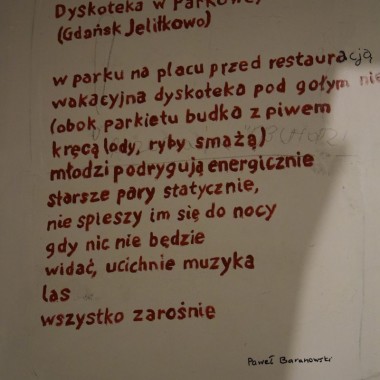 Dyskoteka w Parkowej
(Gdańsk Jelitkowo)
w parku na placu przed restauracją
wakacyjna dyskoteka pod gołym nie
(obok parkietu budka z piwem
kręcą lody, ryby smażą)
młodzi podrygują energicznie
starsze pary statycznie,
nie spieszy im się do nocy
gdy nic nie będzie
widać, ucichnie muzyka
las
wszystko zarośnie
Paweł Baranowski